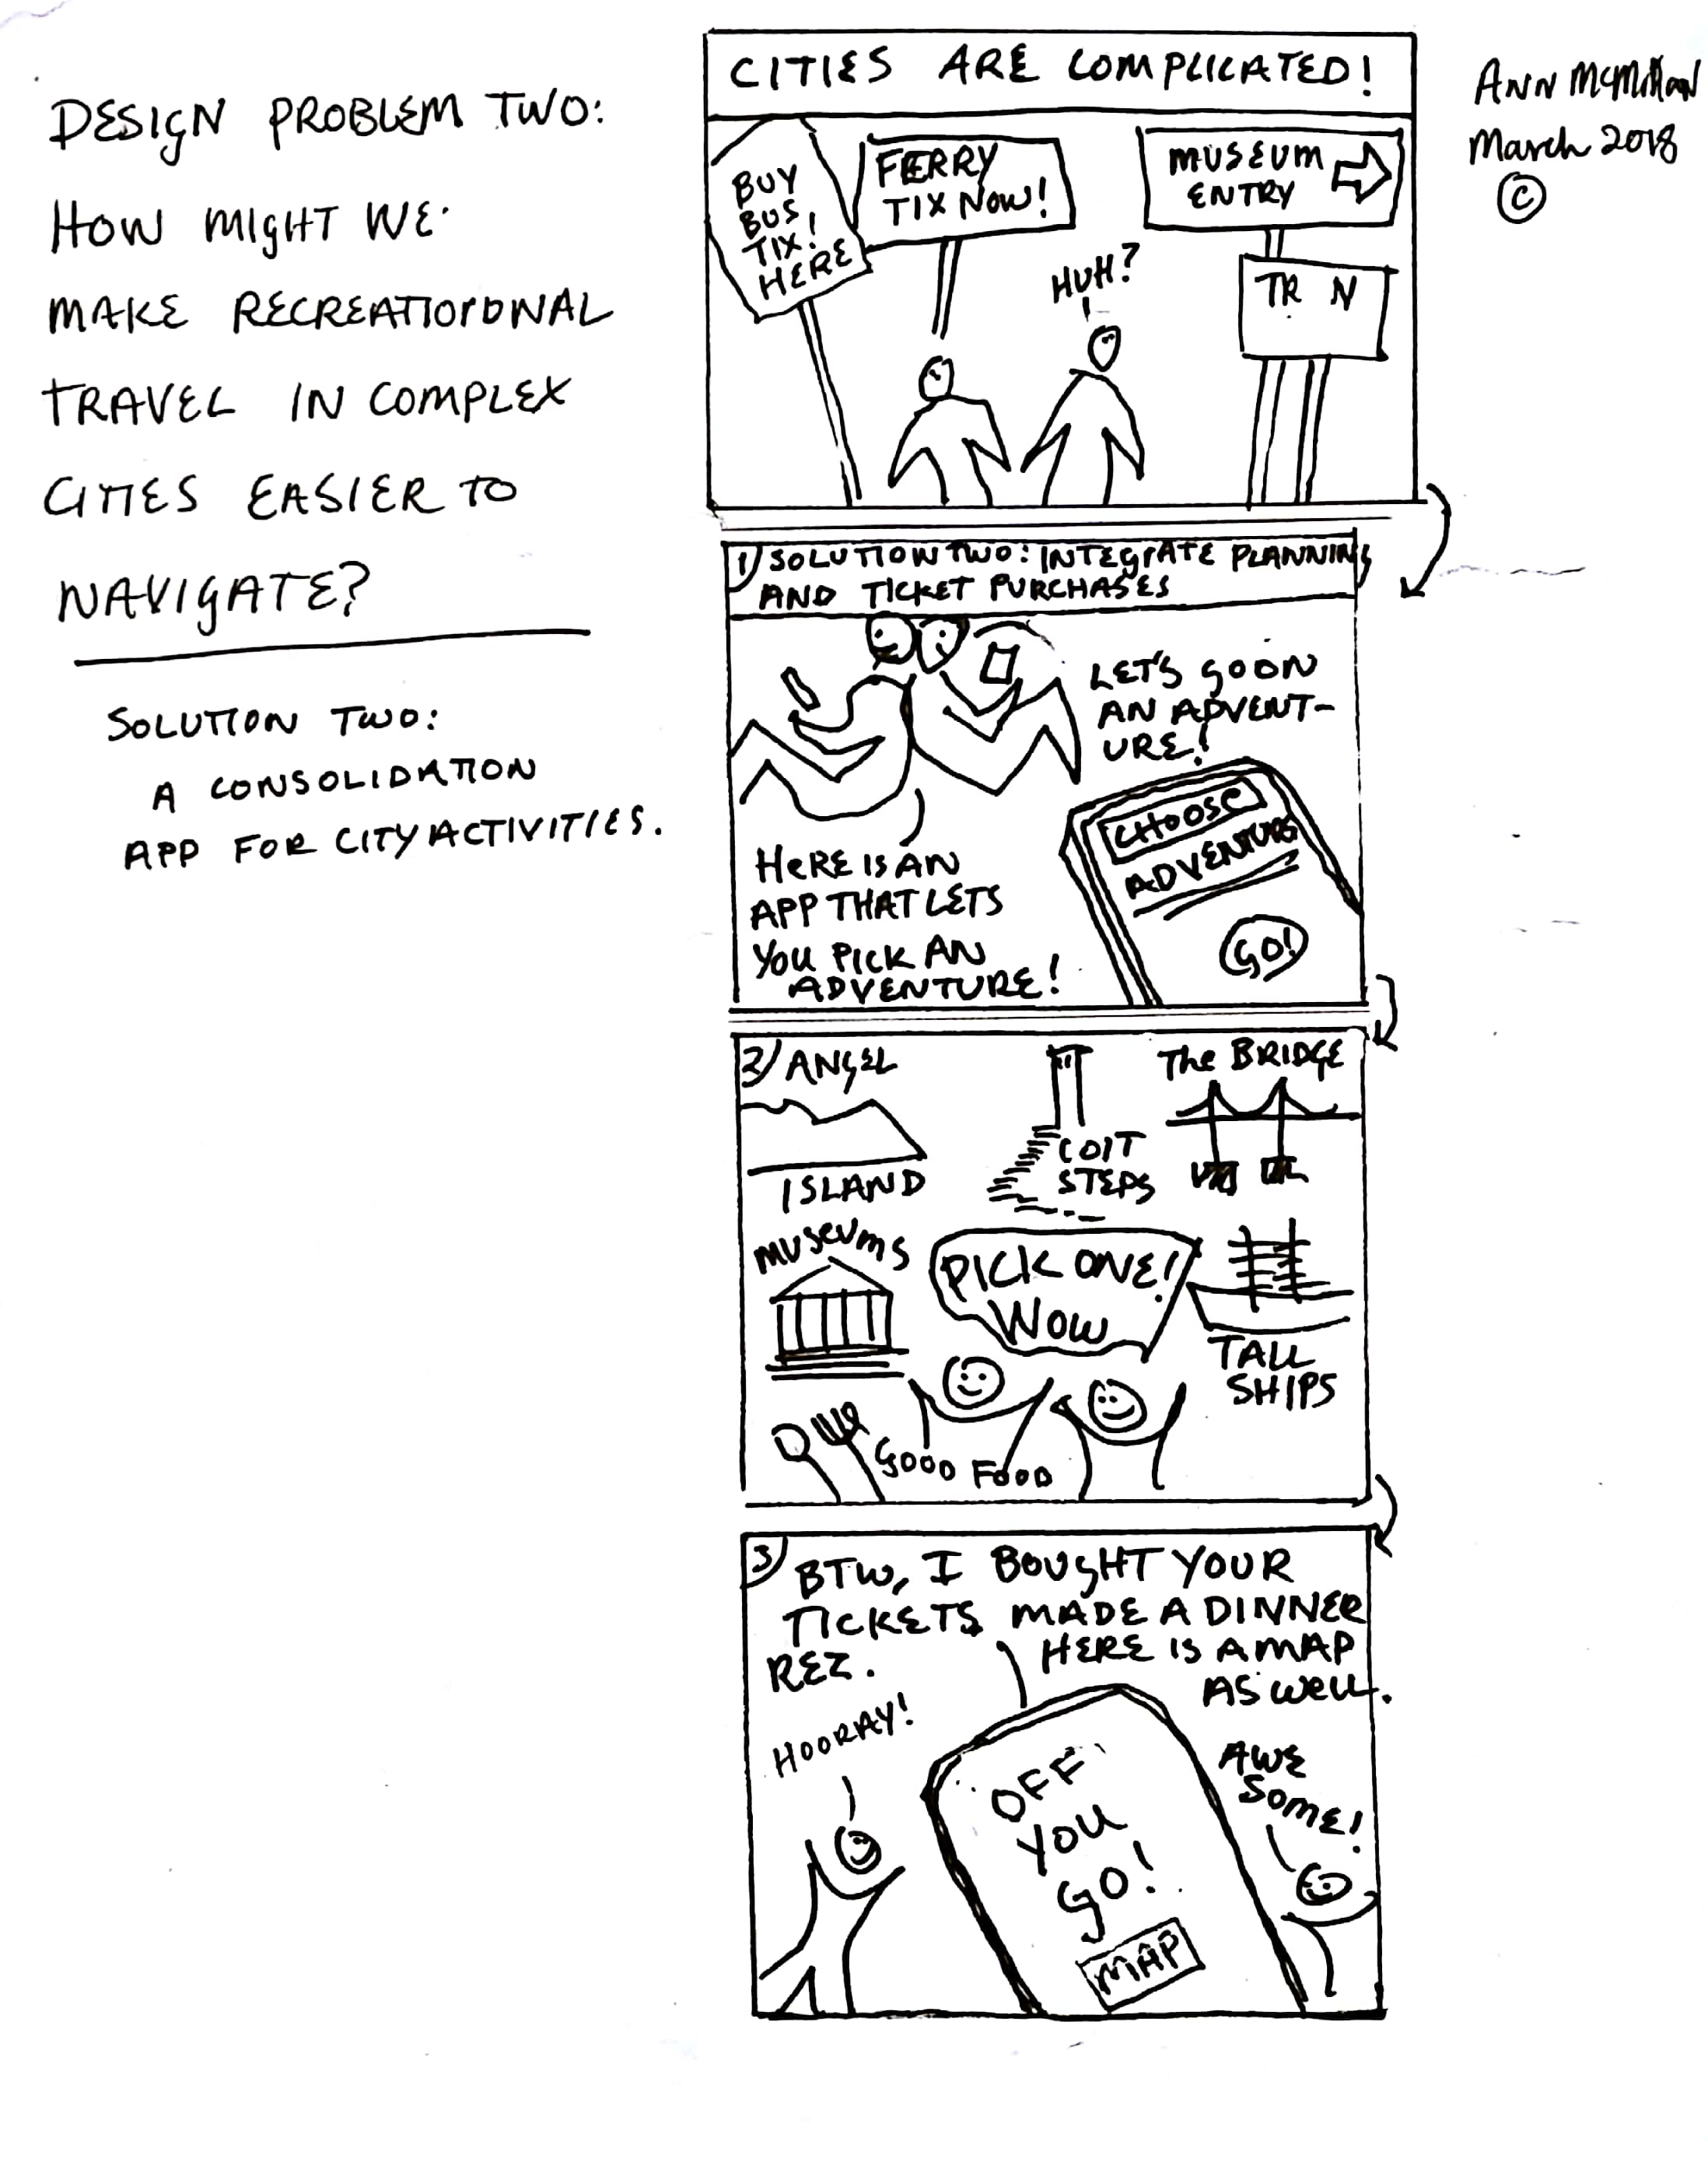 DESIGN PROBLEM TWO:
HOW MIGHT WE:
MAKE RECREATIOIONAL
TRAVEL IN COMPLEX
CITIES EASIER TO
NAVIGATE?
SOLUTION TWO:
A CONSOLIDATION
APP FOR CITY ACTIVITIES.
CITIES ARE COMPLICATED!
ANN McMillan
March 2018
©
BUY
BUS
TIX!
HERE
FERRY
TIX NOW!
MUSEUM
ENTRY
TR N
HUH?
1) SOLUTION TWO: INTEGRATE PLANNING
AND TICKET PURCHASES
LET'S GO ON
AN ADVENT-
URE!
HERE IS AN
APP THAT LETS
YOU PICK AN
ADVENTURE!
CHOOSE
ADVENTURE
GO!
2) ANGEL
ISLAND
COIT
STEPS
The BRIDGE
MUSEUMS
PICK ONE!
WOW
TALL
SHIPS
GOOD FOOD
3) BTW, I BOUGHT YOUR
TICKETS, MADE A DINNER
REZ.
HERE IS A MAP
AS WELL.
HOORAY!
OFF
YOU
GO!
MAP
AWE
SOME!